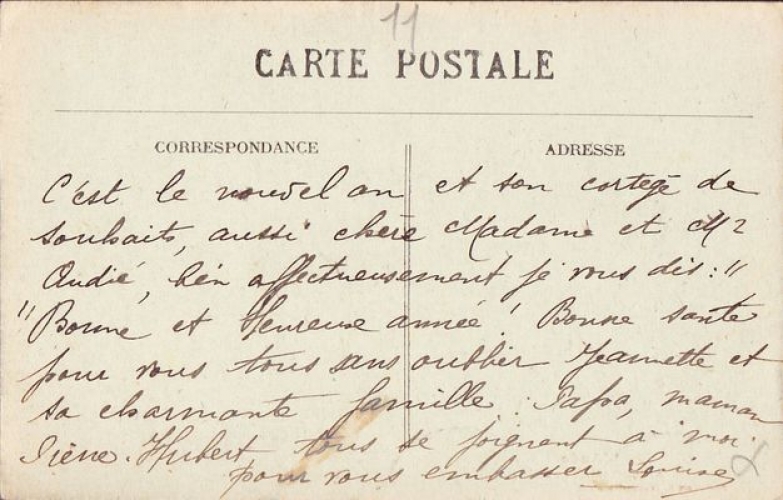 11
CARTE POSTALE
CORRESPONDANCE
ADRESSE
C'est le nouvel an et son cortege de
souhaits, aussi chère Madame et Mr
Audié, bén affectueusement je vous dis : "
"Bonne et Heureuse année ! Bonne santé
pour vous tous sans oublier Jeannette et
sa charmante famille. Papa, maman
Irène. Hubert tous se joignent à moi
pour vous embrasser Louise